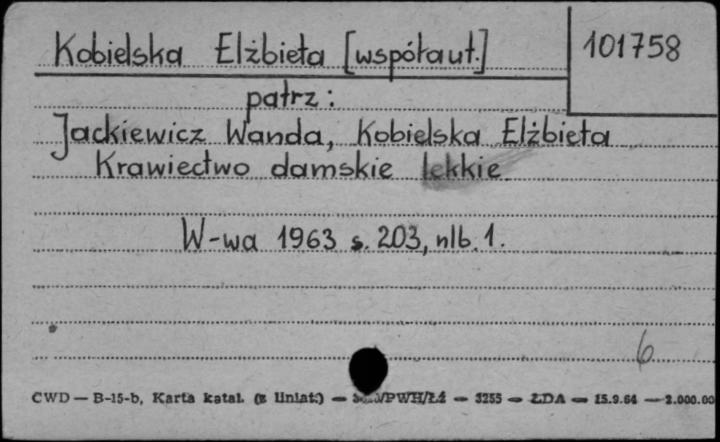 Kobielska Elżbieta [współaut.]
101758
patrz:
Jackiewicz Wanda, Kobielska Elżbieta
Krawiectwo damskie lekkie
W-wa 1963 s. 203, nlb. 1.
6
CWD — B-15-b, Karta katal. (z liniat.) — /PWH/Łź — 3255 — ŁDA — 15.9.64 — 2.000.00